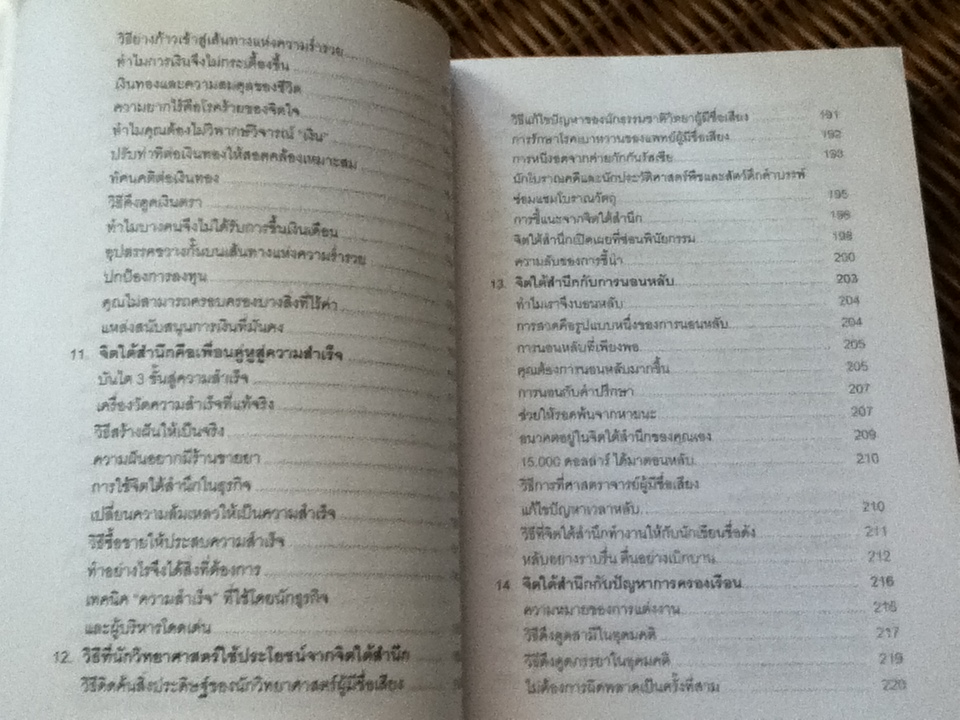 วิธีย่างก้าวเข้าสู่เส้นทางแห่งความร่ำรวย
ทำไมการเงินจึงไม่กระเตื้องขึ้น
เงินทองและความสมดุลของชีวิต
ความยากไร้คือโรคร้ายของจิตใจ
ทำไมคุณต้องไม่วิพากษ์วิจารณ์ "เงิน"
ปรับท่าทีต่อเงินทองให้สอดคล้องเหมาะสม
ทัศนคติต่อเงินทอง
วิธีดึงดูดเงินตรา
ทำไมบางคนจึงไม่ได้รับการขึ้นเงินเดือน
อุปสรรคขวางกั้นบนเส้นทางแห่งความร่ำรวย
ปกป้องการลงทุน
คุณไม่สามารถครอบครองบางสิ่งที่ไร้ค่า
แหล่งสนับสนุนการเงินที่มั่นคง
11. จิตใต้สำนึกคือเพื่อนคู่หูสู่ความสำเร็จ
บันได 3 ขั้นสู่ความสำเร็จ
เครื่องวัดความสำเร็จที่แท้จริง
วิธีสร้างฝันให้เป็นจริง
ความฝันอยากมีร้านขายยา
การใช้จิตใต้สำนึกในธุรกิจ
เปลี่ยนความล้มเหลวให้เป็นความสำเร็จ
วิธีซื้อขายให้ประสบความสำเร็จ
ทำอย่างไรจึงได้สิ่งที่ต้องการ
เทคนิค "ความสำเร็จ" ที่ใช้โดยนักธุรกิจ
และผู้บริหารโดดเด่น
12. วิธีที่นักวิทยาศาสตร์ใช้ประโยชน์จากจิตใต้สำนึก
วิธีคิดค้นสิ่งประดิษฐ์ของนักวิทยาศาสตร์ผู้มีชื่อเสียง
วิธีแก้ไขปัญหาของนักธรรมชาติวิทยาผู้มีชื่อเสียง 191
การรักษาโรคเบาหวานของแพทย์ผู้มีชื่อเสียง 192
การหนีรอดจากค่ายกักกันรัสเซีย 193
นักโบราณคดีและนักประวัติศาสตร์พืชและสัตว์ดึกดำบรรพ์
ซ่อมแซมโบราณวัตถุ 195
การชี้แนะจากจิตใต้สำนึก 196
จิตใต้สำนึกเปิดเผยที่ซ่อนพินัยกรรม 198
ความลับของการชี้นำ 200
13. จิตใต้สำนึกกับการนอนหลับ 203
ทำไมเราจึงนอนหลับ 204
การสวดคือรูปแบบหนึ่งของการนอนหลับ 204
การนอนหลับที่เพียงพอ 205
คุณต้องการนอนหลับมากขึ้น 205
การนอนกับคำปรึกษา 207
ช่วยให้รอดพ้นจากหายนะ 207
อนาคตอยู่ในจิตใต้สำนึกของคุณเอง 209
15,000 ดอลล่าร์ ได้มาตอนหลับ 210
วิธีการที่ศาสตราจารย์ผู้มีชื่อเสียง
แก้ไขปัญหาเวลาหลับ 210
วิธีที่จิตใต้สำนึกทำงานให้กับนักเขียนชื่อดัง 211
หลับอย่างราบรื่น ตื่นอย่างเบิกบาน 212
14. จิตใต้สำนึกกับปัญหาการครองเรือน 216
ความหมายของการแต่งงาน 216
วิธีดึงดูดสามีในอุดมคติ 217
วิธีดึงดูดภรรยาในอุดมคติ 219
ไม่ต้องการผิดพลาดเป็นครั้งที่สาม 220